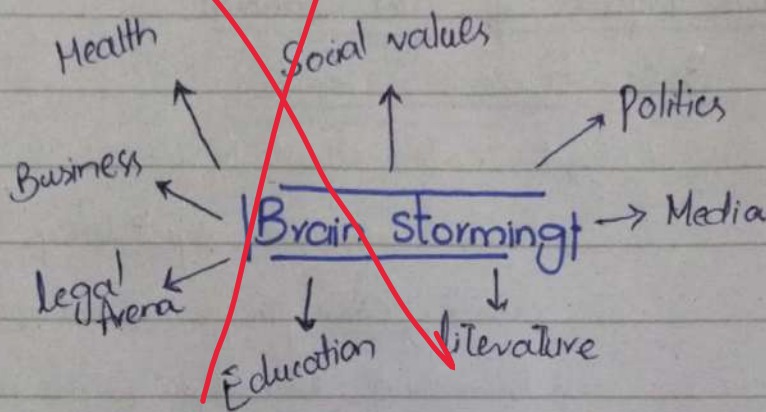 Health
Social values
Politics
Business
Brain storming
Media
legal
Arena
Education
literature